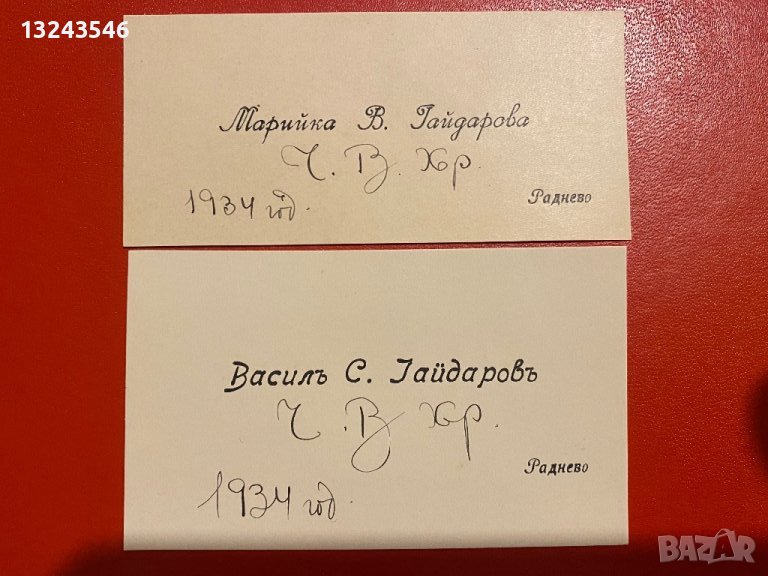 13243546
Марийка В. Гайдарова
Ч. В. Хр.
1934 год.
Раднево
Василъ С. Гайдаровъ
Ч. В. Хр.
Раднево
1934 год.
BAZAR